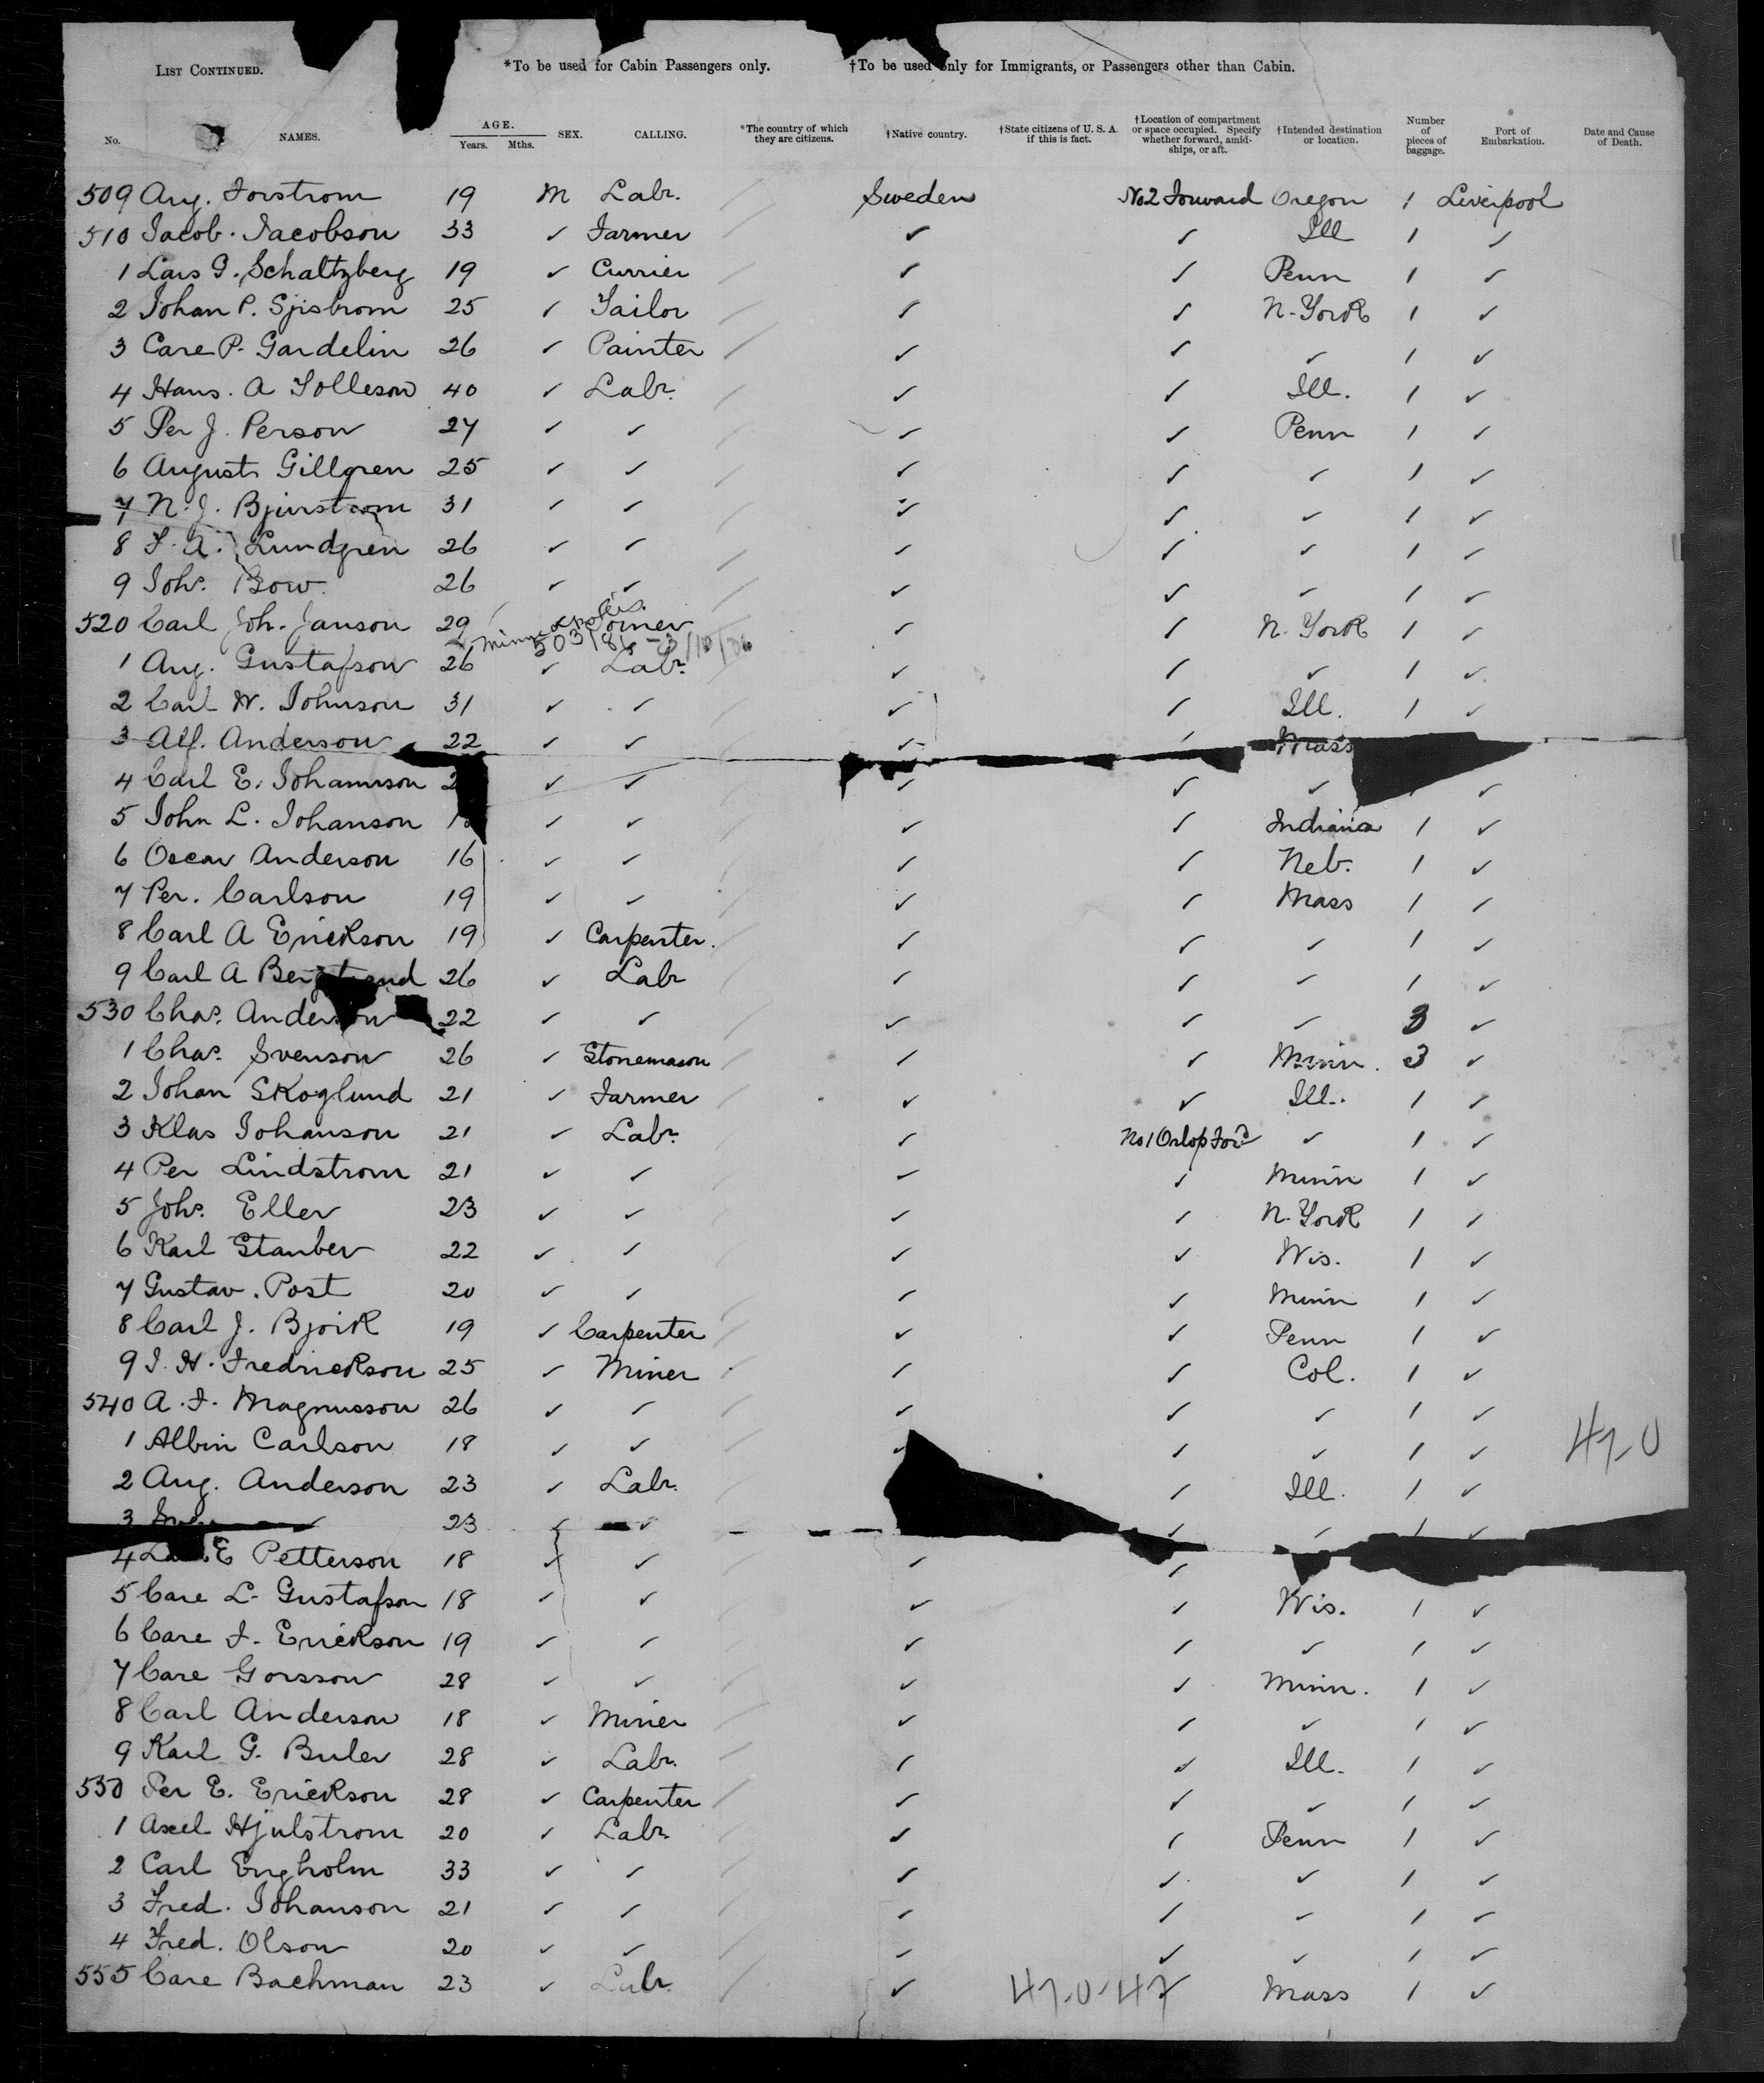 LIST CONTINUED. *To be used for Cabin Passengers only. †To be used only for Immigrants, or Passengers other than Cabin.
No. NAMES. AGE. Years. Mths. SEX. CALLING. *The country of which they are citizens. †Native country. †State citizens of U. S. A. if this is fact. †Location of compartment or space occupied. Specify whether forward, amidships, or aft. †Intended destination or location. Number of pieces of baggage. Port of Embarkation. Date and Cause of Death.
509 Aug. Forstrom 19 M Labr. Sweden No 2 Forward Oregon 1 Liverpool
510 Jacob. Jacobson 33 ✓ Farmer ✓ ✓ Ill 1 ✓
1 Lars G. Schaltzberg 19 ✓ Currier ✓ ✓ Penn 1 ✓
2 Johan P. Sjistrom 25 ✓ Tailor ✓ ✓ N-York 1 ✓
3 Care P. Gardelin 26 ✓ Painter ✓ ✓ ✓ 1 ✓
4 Hans. A Tolleson 40 ✓ Labr. ✓ ✓ Ill. 1 ✓
5 Per J. Person 27 ✓ ✓ ✓ ✓ Penn 1 ✓
6 August Gillgren 25 ✓ ✓ ✓ ✓ ✓ 1 ✓
7 N. J. Bjurstrom 31 ✓ ✓ ✓ ✓ ✓ 1 ✓
8 F. A. Lundgren 26 ✓ ✓ ✓ ✓ ✓ 1 ✓
9 Johs. Bow. 26 ✓ ✓ ✓ ✓ ✓ 1 ✓
520 Carl Joh. Janson 29 Joiner ✓ ✓ N. York 1 ✓
1 Aug. Gustafson 26 ✓ Labr. ✓ ✓ ✓ 1 ✓
2 Carl W. Johnson 31 ✓ ✓ ✓ ✓ Ill. 1 ✓
3 Alf. Anderson 22 ✓ ✓ ✓ ✓ Mass
4 Carl E. Johannson 2 ✓ ✓ ✓ ✓ ✓ ✓
5 John L. Johanson ✓ ✓ ✓ ✓ Indiana 1 ✓
6 Oscar Anderson 16 ✓ ✓ ✓ ✓ Neb. 1 ✓
7 Per. Carlson 19 ✓ ✓ ✓ ✓ Mass 1 ✓
8 Carl A Erickson 19 ✓ Carpenter. ✓ ✓ ✓ 1 ✓
9 Carl A Bergstrand 26 ✓ Labr ✓ ✓ ✓ 1 ✓
530 Chas. Anderson 22 ✓ ✓ ✓ ✓ ✓ 3 ✓
1 Chas. Svenson 26 ✓ Stonemason ✓ ✓ Minn. 3 ✓
2 Johan Skoglund 21 ✓ Farmer ✓ ✓ Ill. 1 ✓
3 Klas Johanson 21 ✓ Labr. ✓ No 1 Orlop Ford ✓ 1 ✓
4 Per Lindstrom 21 ✓ ✓ ✓ ✓ Minn 1 ✓
5 Johs. Eller 23 ✓ ✓ ✓ ✓ N. York 1 ✓
6 Karl Stauber 22 ✓ ✓ ✓ ✓ Wis. 1 ✓
7 Gustav. Post 20 ✓ ✓ ✓ ✓ Minn 1 ✓
8 Carl J. Bjork 19 ✓ Carpenter ✓ ✓ Penn 1 ✓
9 J. H. Fredrickson 25 ✓ Miner ✓ ✓ Col. 1 ✓
540 A. F. Magnusson 26 ✓ ✓ ✓ ✓ ✓ 1 ✓
1 Albin Carlson 18 ✓ ✓ ✓ ✓ ✓ 1 ✓
2 Aug. Anderson 23 ✓ Labr. ✓ Ill. 1 ✓
3 23 ✓ ✓ ✓ ✓ 1 ✓
4 E Petterson 18 ✓ ✓ ✓ ✓
5 Care L. Gustafson 18 ✓ ✓ ✓ ✓ Wis. 1 ✓
6 Care F. Erickson 19 ✓ ✓ ✓ ✓ ✓ 1 ✓
7 Care Gorsson 28 ✓ ✓ ✓ ✓ Minn. 1 ✓
8 Carl Anderson 18 ✓ Miner ✓ ✓ ✓ 1 ✓
9 Karl G. Buler 28 ✓ Labr. ✓ ✓ Ill. 1 ✓
550 Per E. Erickson 28 ✓ Carpenter ✓ ✓ ✓ 1 ✓
1 Axel Hjulstrom 20 ✓ Labr. ✓ ✓ Penn 1 ✓
2 Carl Engholm 33 ✓ ✓ ✓ ✓ ✓ 1 ✓
3 Fred. Johanson 21 ✓ ✓ ✓ ✓ ✓ 1 ✓
4 Fred. Olson 20 ✓ ✓ ✓ ✓ ✓ 1 ✓
555 Care Bachman 23 ✓ Labr. ✓ ✓ Mass 1 ✓